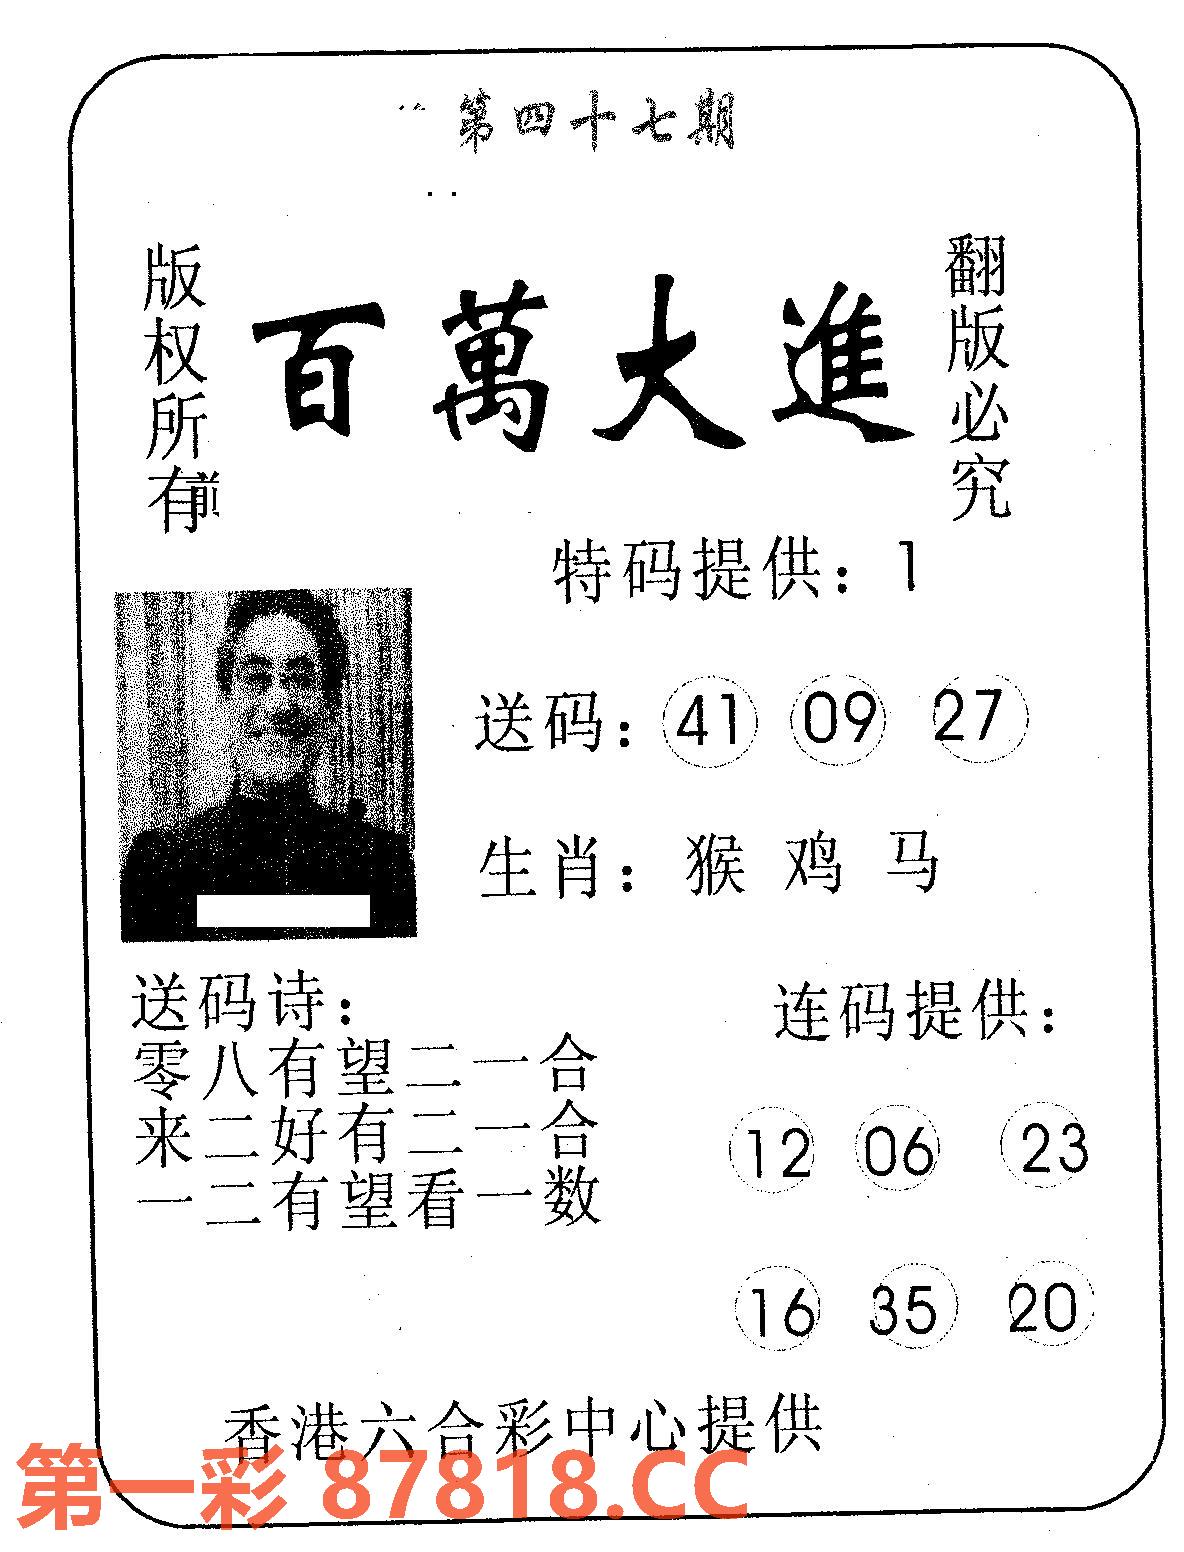 第四十七期
版权所有
百萬大進
翻版必究
特码提供：1
送码：41 09 27
生肖：猴 鸡 马
送码诗：
零八有望二一合
来二好有二一合
一二有望看一数
连码提供：
12 06 23
16 35 20
香港六合彩中心提供
第一彩 87818.CC